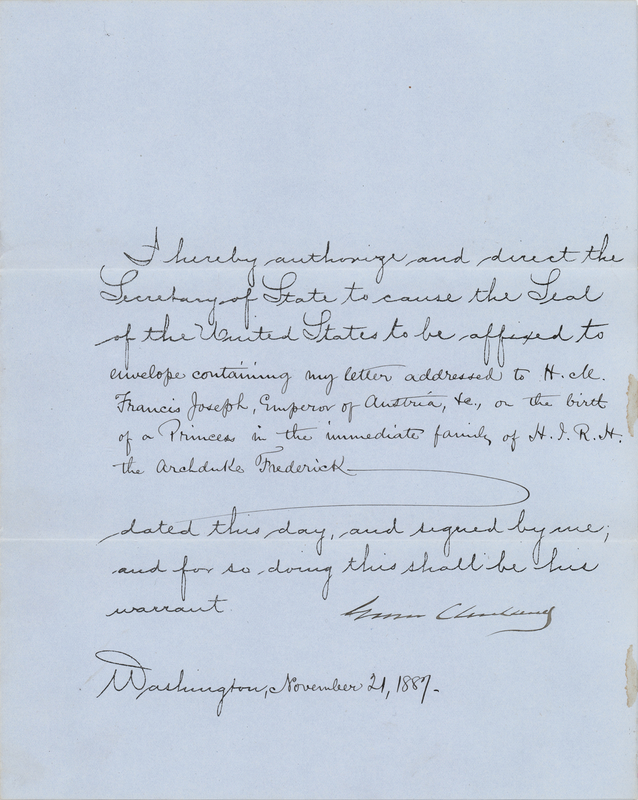 I hereby authorize and direct the
Secretary of State to cause the Seal
of the United States to be affixed to
envelope containing my letter addressed to H. M.
Francis Joseph, Emperor of Austria, &c., on the birth
of a Princess in the immediate family of H. I. R. H.
the Archduke Frederick
dated this day, and signed by me;
and for so doing this shall be his
warrant.
Grover Cleveland
Washington, November 21, 1887.